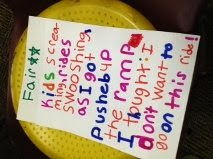 Fair**
Kids screa
ming, rides
swooshing,
as I got
pusheb up
the ramp.
I thought: I
don't want to
go on this ride!